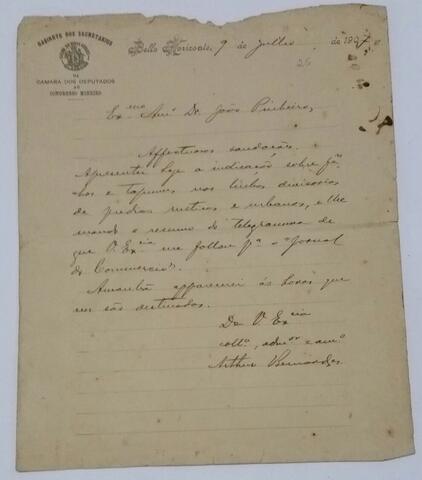 GABINETE DOS SECRETARIOS
DA
CAMARA DOS DEPUTADOS
AO
CONGRESSO MINEIRO
Bello Horizonte, 9 de Julho de 1907
26
Exmo Amo Dr. João Pinheiro,
Affectuosa saudação.
Apresentei hoje a indicação sobre
e tapumes nas linhas divisorias
de predios rusticos e urbanos, e lhe
mando o resumo do telegramma de
que V. Excia me fallou pa o "Jornal
do Commercio".
Amanhã apparecerei ás horas que
me são destinadas.
De V. Excia
collo, admor e amo
Arthur Bernardes